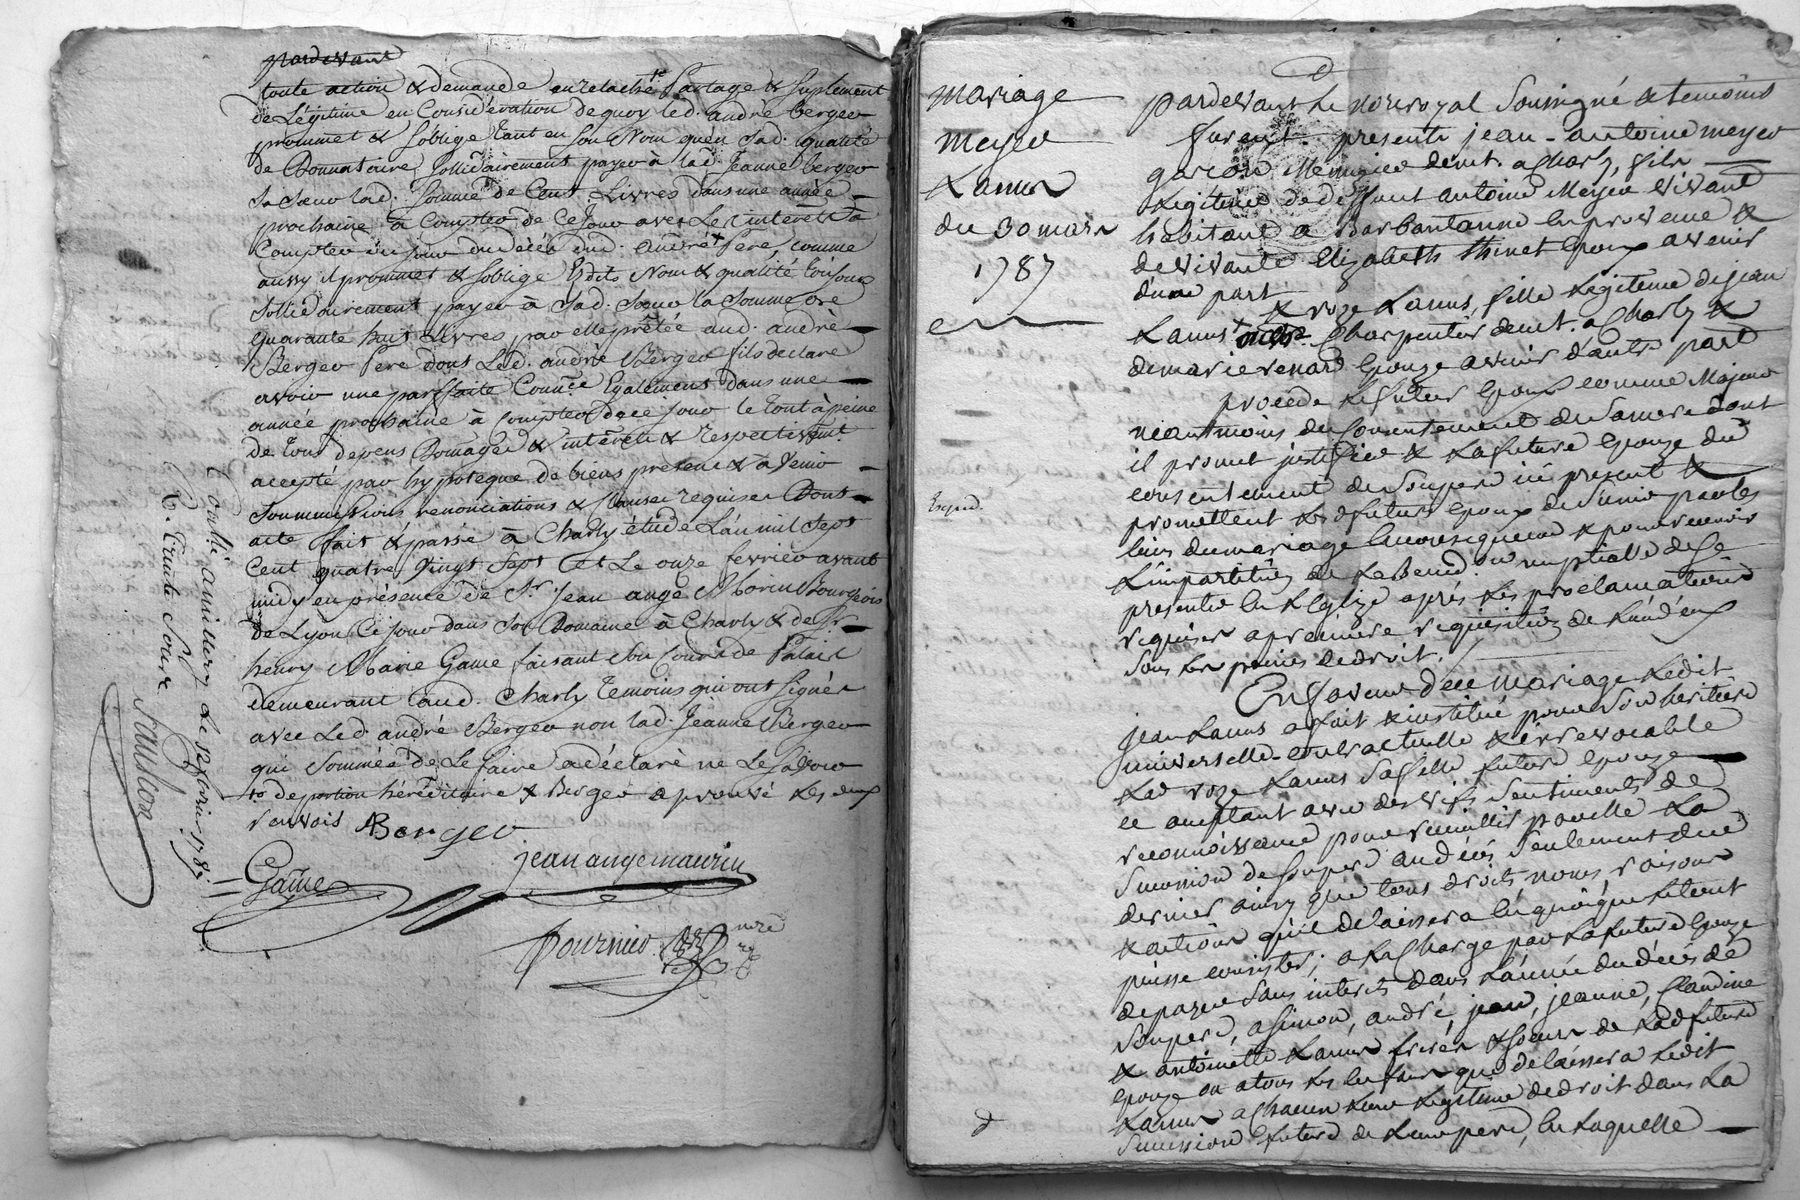 pardevant
toute action & demande en relache Partage & suplement
de Légitime en Considération de quoy led. andré berger
prommet & soblige tant en son Nom quen sad. qualité
de Donnataire sollidairement payer à lad. Jeanne berger
sa sœur lad. somme de Cent Livres dans une année
prochaine à Compter de Ce jour avec Les intérêts à
Compter du jour du décés dud. andré Pere, comme
aussy il prommet & soblige Esdits Nom & qualité toujours
sollidairement payer à sad. sœur la somme de
quarante huit Livres par elle prêtée aud. andré
Berger Pere dont Led. andré Berger fils declare
avoir une parfaite Connce Egalement dans une
année prochaine à Compter de ce jour le tout à peine
de tous depens Domages & intérêts & respectivemt
accepté par hypoteque de biens presens & à Venir
soummissions renonciations & Clauses requises Dont
acte fait & passé à Charly étude L'an mil sept
Cent quatre Vingt Sept et Le onze fevrier avant
midy en présence de Sr. Jean ange Morin Bourgeois
de Lyon Ce jour dans son Domaine à Charly & de Sr
henry Marie Game faisant Cour de Palais
demeurant aud. Charly temoins qui ont signés
avec Led andré Berger non lad. Jeanne Berger
qui sommée de Le faire a déclaré ne Le savoir
to de portion héréditaire & Berger aprouvé Les deux
renvois ABerger
jean ange maurin
Game
fournier nore
Conllé a millery Le 12 fevrier 1787
R. trente sous
mariage
Meyer
Lanus
du 30 mars
1787
Exped.
pardevant le no.re royal soussigné & temoins
furent presents jean-antoine meyer
garçon Menuzier demt. a Charly, fils
Legitime de deffunt antoine Meyer vivant
habitant a Barbantanne en provence &
de vivante Elizabeth thinet Epoux avenir
d'une part
& roze Lanus, fille Legitime de jean
Lanus Charpentier demt. a Charly &
de marie renard Epouze avenir d'autre part
procede Le futur Epoux comme Majeur
néantmoins du Consentement de sa mere dont
il promet justifier & La future Epouze du
consentement de son pere ici present &
promettent Lesd futurs Epoux de s'unir par les
liens du mariage en consequence & pour recevoir
L'impartition de La Bened.on nuptialle de se
presenter en L'Eglize après Les proclamations
requises a premiere requisition de L'un d'eux
sous Les peines de droit.
En faveur de ce mariage Ledit
jean Lanus a fait & institué pour son heritiere
universelle contractuelle & irrevocable
Lad roze Lanus sa fille future Epouze
ce acceptant avec des vifs sentiments de
reconnoissance pour recueillir par elle La
succession de son pere au décés seulement de ce
dernier ainsy que tous droits, noms raisons
& actions qu'il delaissera en quoi que le tout
puisse consister; a La Charge par La future Epouze
de payer sans interets dans L'année du décés de
son pere, a simon, andré, jean, jeanne, Claudine
& antoinette Lanus freres & soeurs de Lad future
Epouze ou a tous Les enfans que delaissera Ledit
Lanus a Chacun Leur Legitime de droit dans La
succession future de Leur pere, en Laquelle